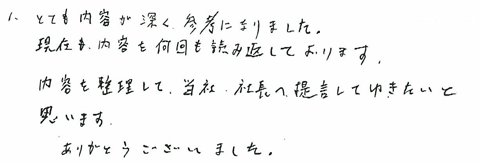 1. とても内容が深く、参考になりました。
現在も、内容を何回も読み返しております。
内容を整理して、当社、社長へ、提言してゆきたいと
思います。
ありがとうございました。